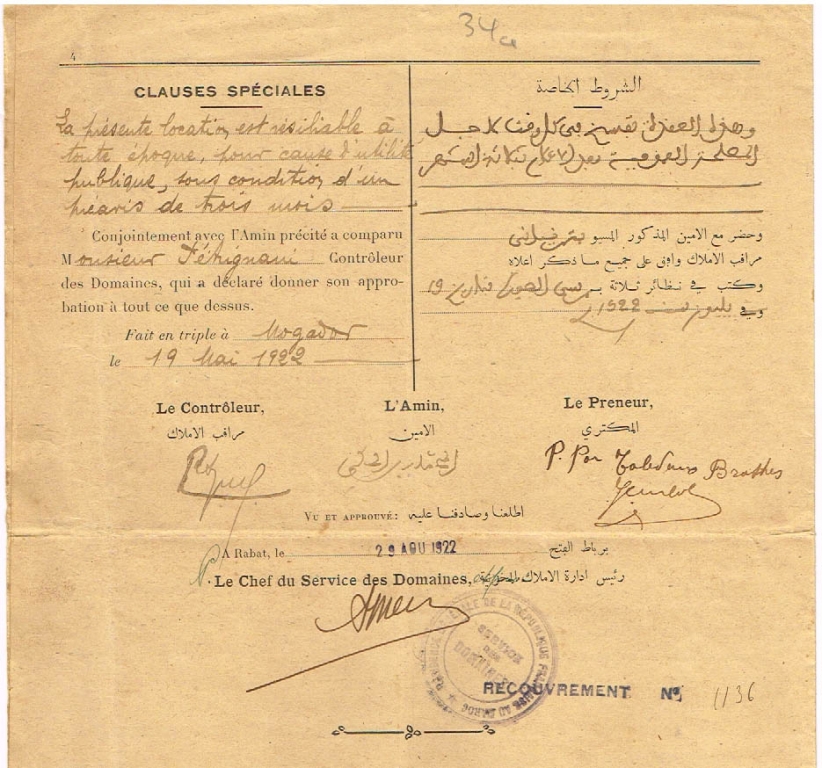 34a
4
CLAUSES SPÉCIALES
La présente location est résiliable à
toute époque, pour cause d'utilité
publique, sous condition d'un
préavis de trois mois
Conjointement avec l'Amin précité a comparu
Monsieur Pétrignani Contrôleur
des Domaines, qui a déclaré donner son appro-
bation à tout ce que dessus.
Fait en triple à Mogador
le 19 Mai 1922
الشروط الخاصة
وهذه العقدة تفسخ في كل وقت لاجل
المصلحة العمومية بعد الاعلام بثلاثة اشهر
وحضر مع الامين المذكور المسيو بترنياني
مراقب الاملاك وافق على جميع ما ذكر اعلاه
وكتب في نظائر ثلاثة بمرسى الصويرة بتاريخ 19
1922
Le Contrôleur,
مراقب الاملاك
L'Amin,
الامين
Le Preneur,
المكتري
P. Por Toledano Brothers
VU ET APPROUVÉ: اطلعنا وصادفنا عليه
A Rabat, le 29 AOU 1922 برباط الفتح
P. Le Chef du Service des Domaines, رئيس ادارة الاملاك
DE LA RÉPUBLIQUE FRANÇAISE AU MAROC
SERVICE
DES
DOMAINES
RECOUVREMENT Nº 1136